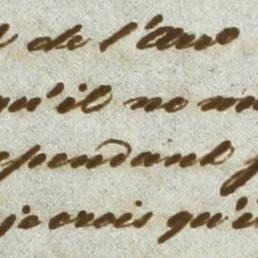 de l'Auro
qu'il ne
ependant
je crois qu'il